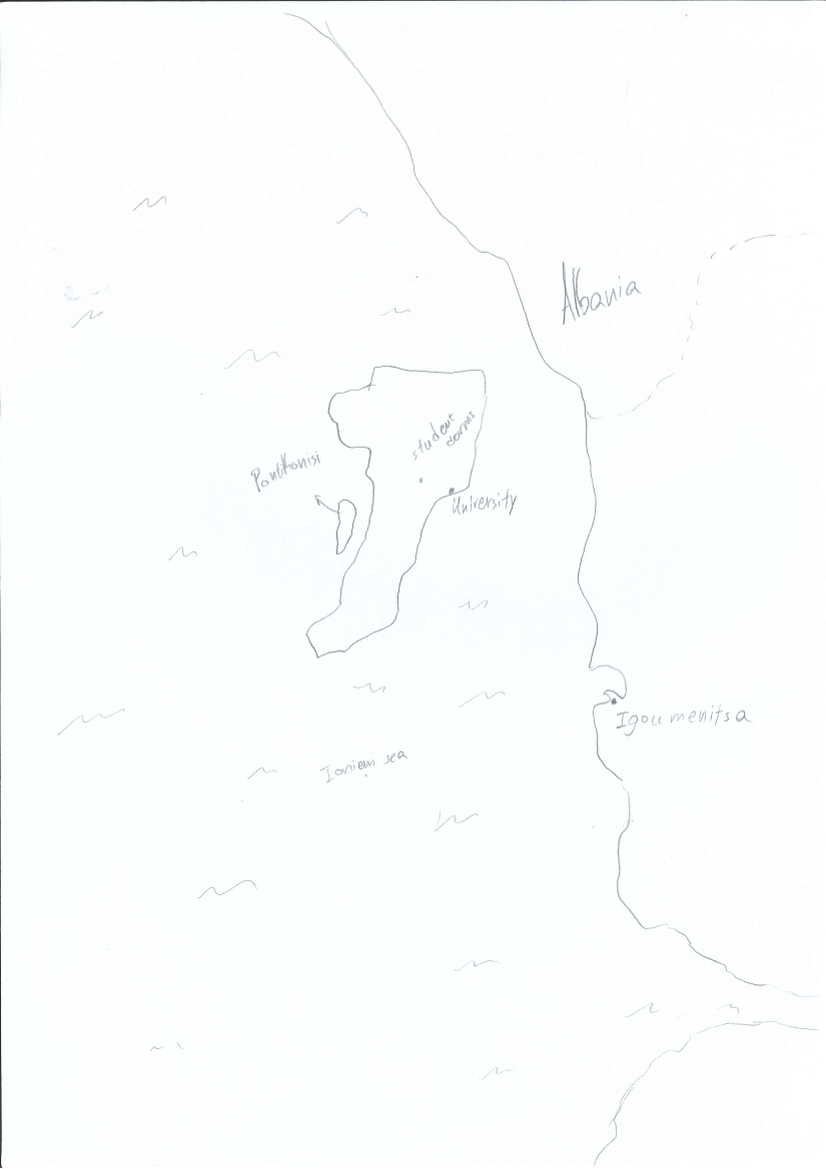 Albania
student
dorms
Pontikonisi
University
Igoumenitsa
Ionian sea